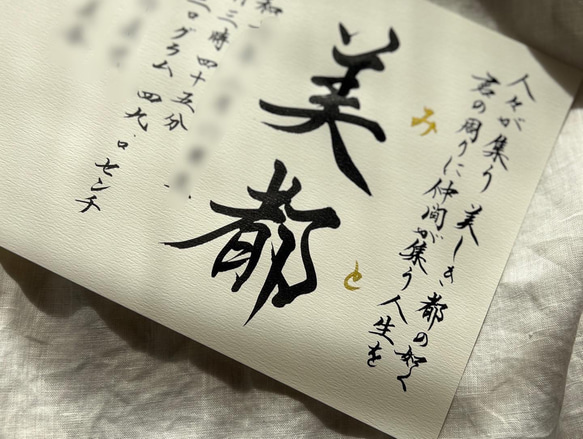 人々が集う 美しき都の如く
君の周りに仲間が集う人生を
美都
みと
和一
三時四十五分
ログラム 四九.〇センチ